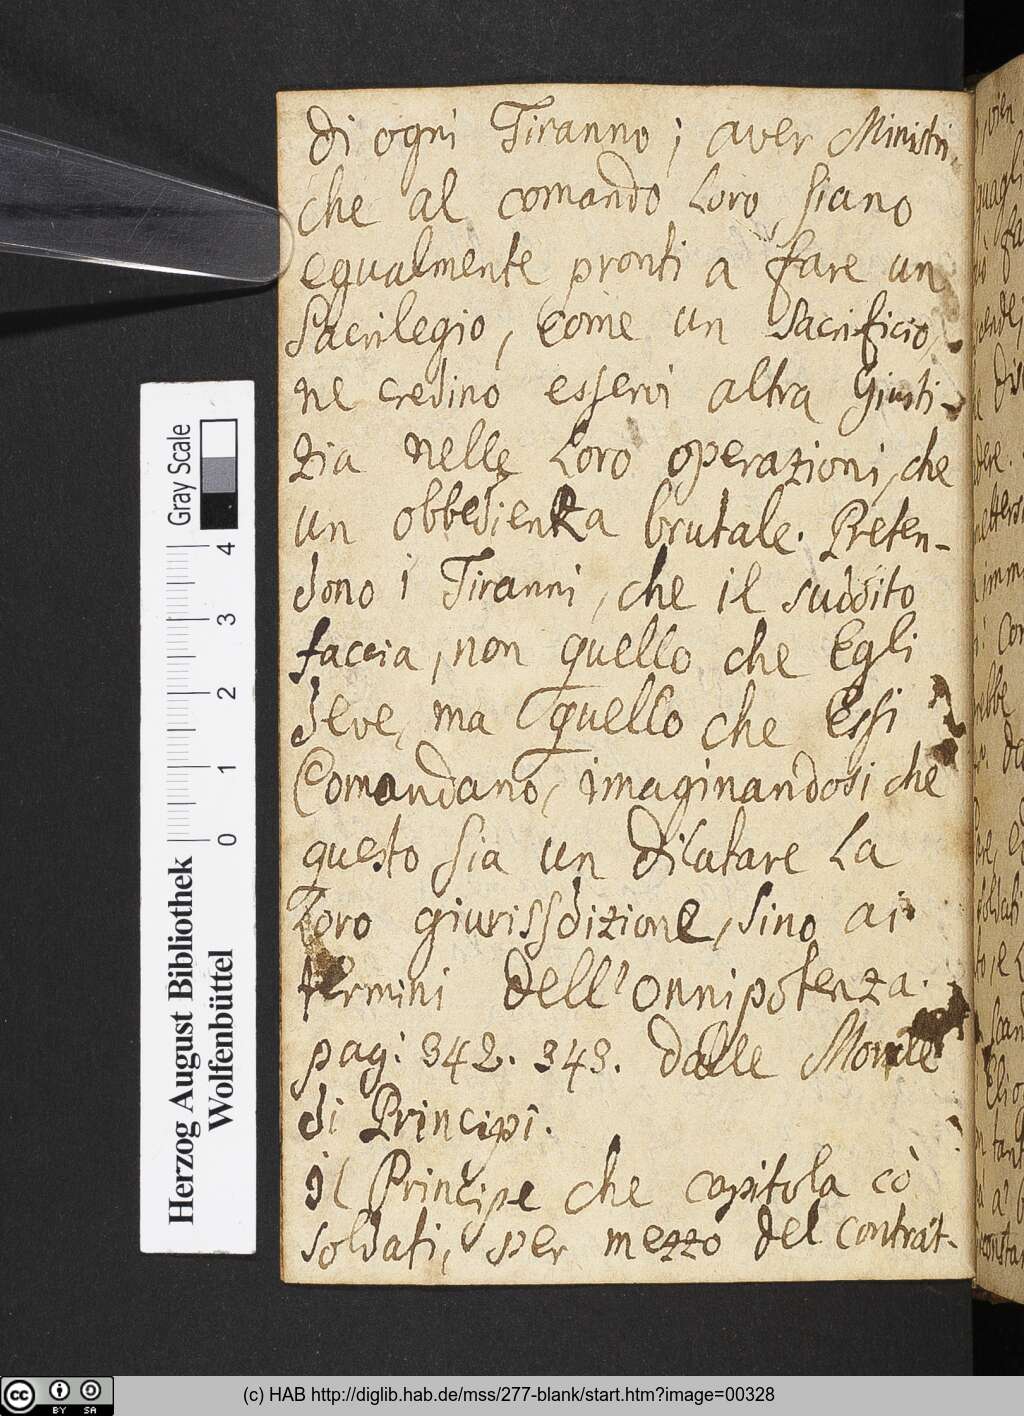 di ogni Tiranno; aver Ministri
che al comando Loro siano
egualmente pronti a fare un
Sacrilegio, come un Sacrificio,
ne credino esservi altra Giusti-
zia nelle Loro operazioni, che
un obbedienza brutale. Preten-
dono i Tiranni, che il suddito
faccia, non quello che Egli
deve, ma quello che Essi
Comandano, imaginandosi che
questo sia un dilatare La
Loro giurissdizione, sino ai
termini dell'onnipotenza.
pag: 342. 343. dalle Morale
di Principi.
il Principe che capitola cò
soldati, per mezzo del contrat-
Herzog August Bibliothek
Wolfenbüttel
Gray Scale
0 1 2 3 4
cc BY SA
(c) HAB http://diglib.hab.de/mss/277-blank/start.htm?image=00328